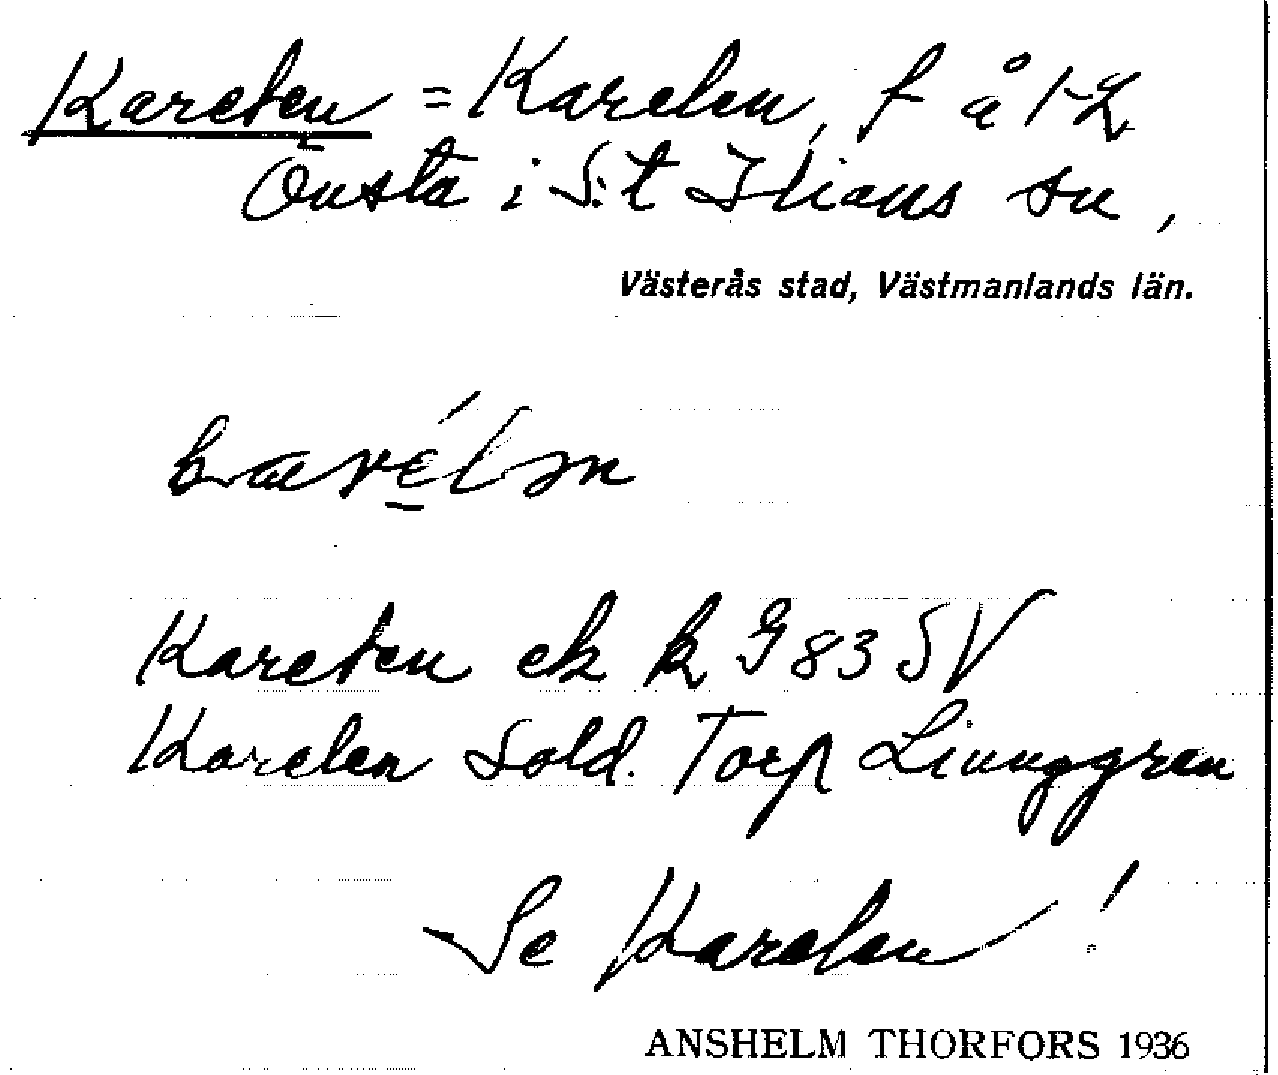 Kareten = Karelen, f å 1-2
Önsta i S:t Ilians sn,
Västerås stad, Västmanlands län.
karélən
Kareten ek k G 83 SV
Karelen Sold. Torp Ljunggren
Se Karelen!
ANSHELM THORFORS 1936